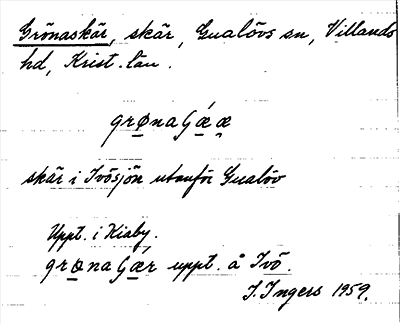 Grönaskär, skär, Gualövs sn, Villands
hd, Krist. län.
grønaʃǽæ̯
skär i Ivösjön utanför Gualöv
Uppt. i Kiaby.
grønaʃǽr uppt. å Ivö.
I. Ingers 1959.